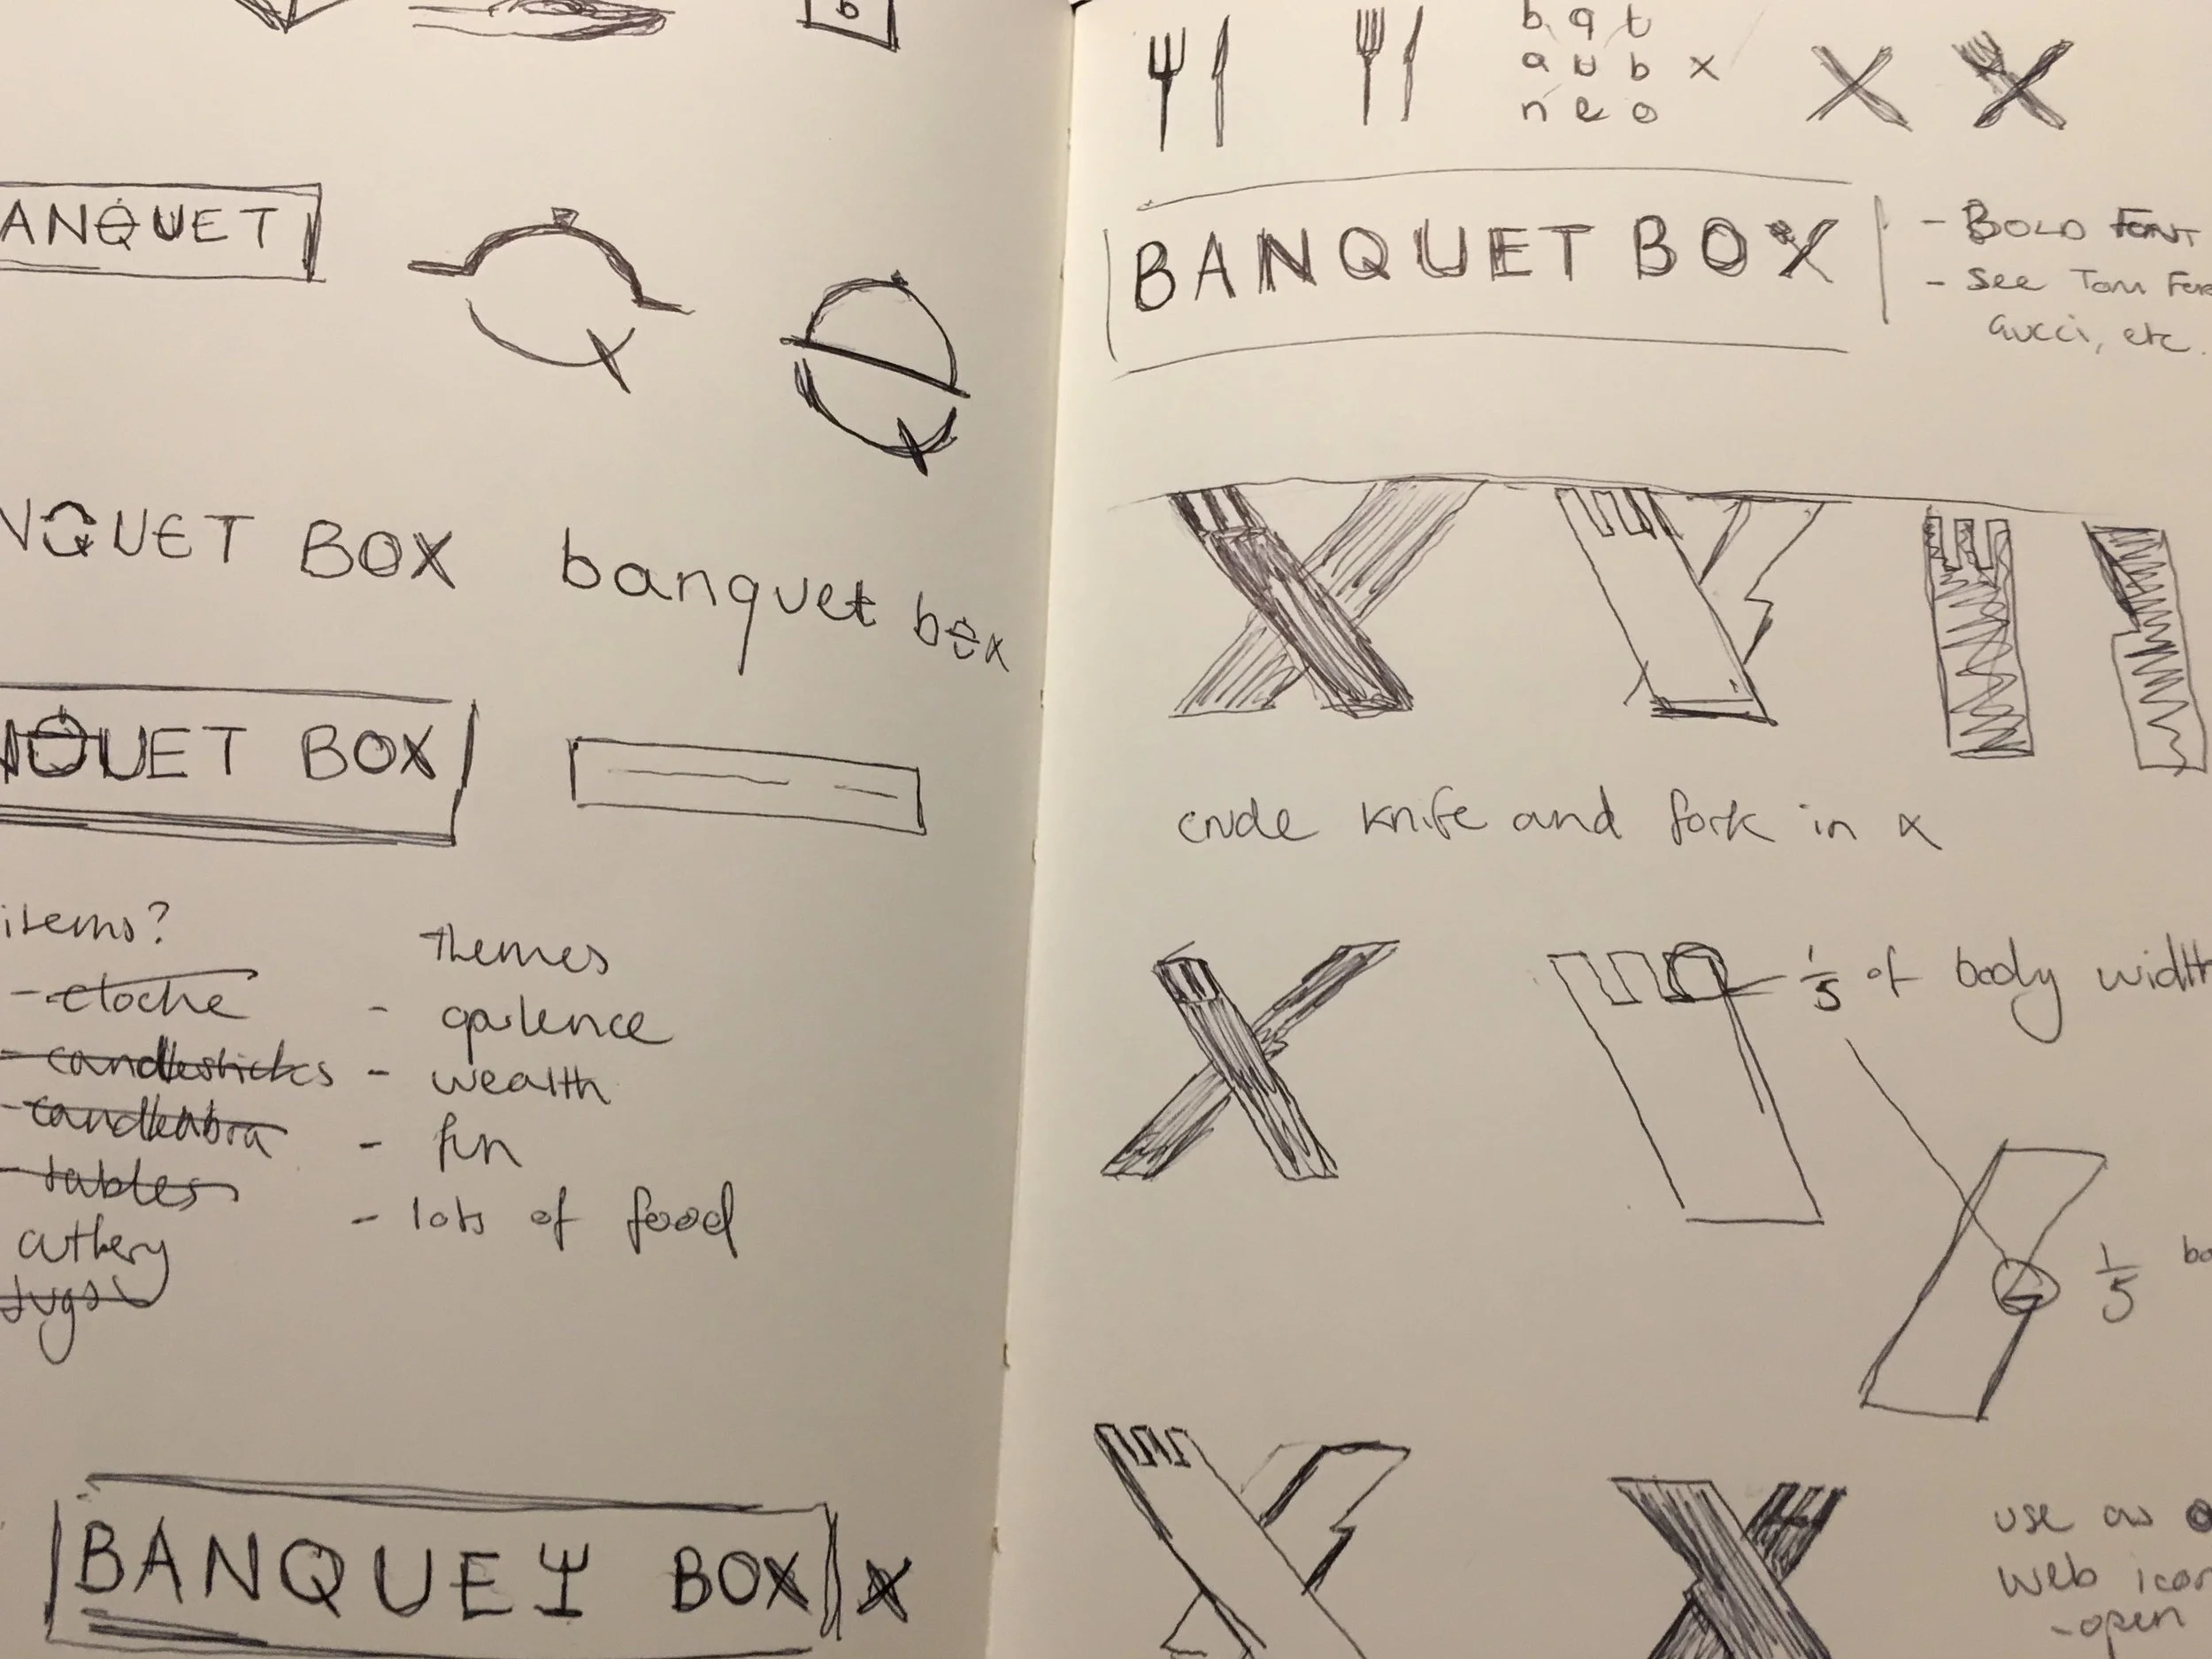 b
ANQUET
NQUET BOX
banquet box
NQUET BOX
items?
- cloche
- candlesticks
- candleabra
- tables
cutlery
jugs
themes
- opulence
- wealth
- fun
- lots of food
BANQUET BOX
x
b q t
a u b x
n e o
BANQUET BOX
- BOLD FONT
- See Tom
Gucci, etc.
crude knife and fork in x
1/5 of body width
1/5
use as
web icon
- open